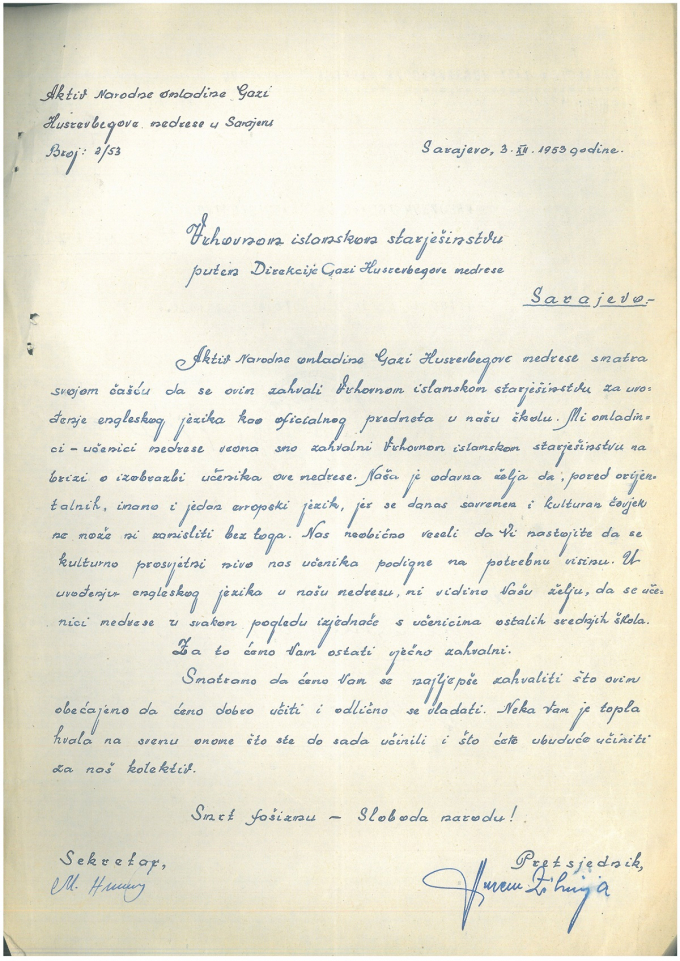 Aktiv Narodne omladine Gazi
Husrevbegove medrese u Sarajevu
Broj: 2/53
Sarajevo, 3. XII. 1953 godine.
Vrhovnom islamskom starješinstvu
putem Direkcije Gazi Husrevbegove medrese
Sarajevo.-
Aktiv Narodne omladine Gazi Husrevbegove medrese smatra
svojom čašću da se ovim zahvali Vrhovnom islamskom starješinstvu za uvo-
đenje engleskog jezika kao oficialnog predmeta u našu školu. Mi omladin-
ci - učenici medrese veoma smo zahvalni Vrhovnom islamskom starješinstvu na
brizi o izobrazbi učenika ove medrese. Naša je odavna želja da, pored orijen-
talnih, imamo i jedan evropski jezik, jer se danas savremen i kulturan čovjek
ne može ni zamisliti bez toga. Nas neobično veseli da Vi nastojite da se
kulturno prosvjetni nivo nas učenika podigne na potrebnu visinu. U
uvođenju engleskog jezika u našu medresu, mi vidimo Vašu želju, da se uče-
nici medrese u svakom pogledu izjednače s učenicima ostalih srednjih škola.
Za to ćemo Vam ostati vječno zahvalni.
Smatramo da ćemo Vam se najljepše zahvaliti što ovim
obećajemo da ćemo dobro učiti i odlično se vladati. Neka Vam je topla
hvala na svemu onome što ste do sada učinili i što ćete ubuduće učiniti
za naš kolektiv.
Smrt fašizmu - Sloboda narodu!
Sekretar,
Pretsjednik,
M.